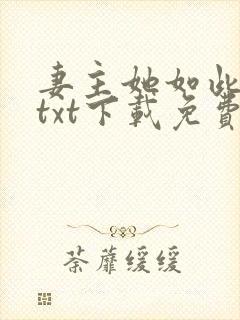 妻主她如此
txt下载免費
荼蘼缓缓